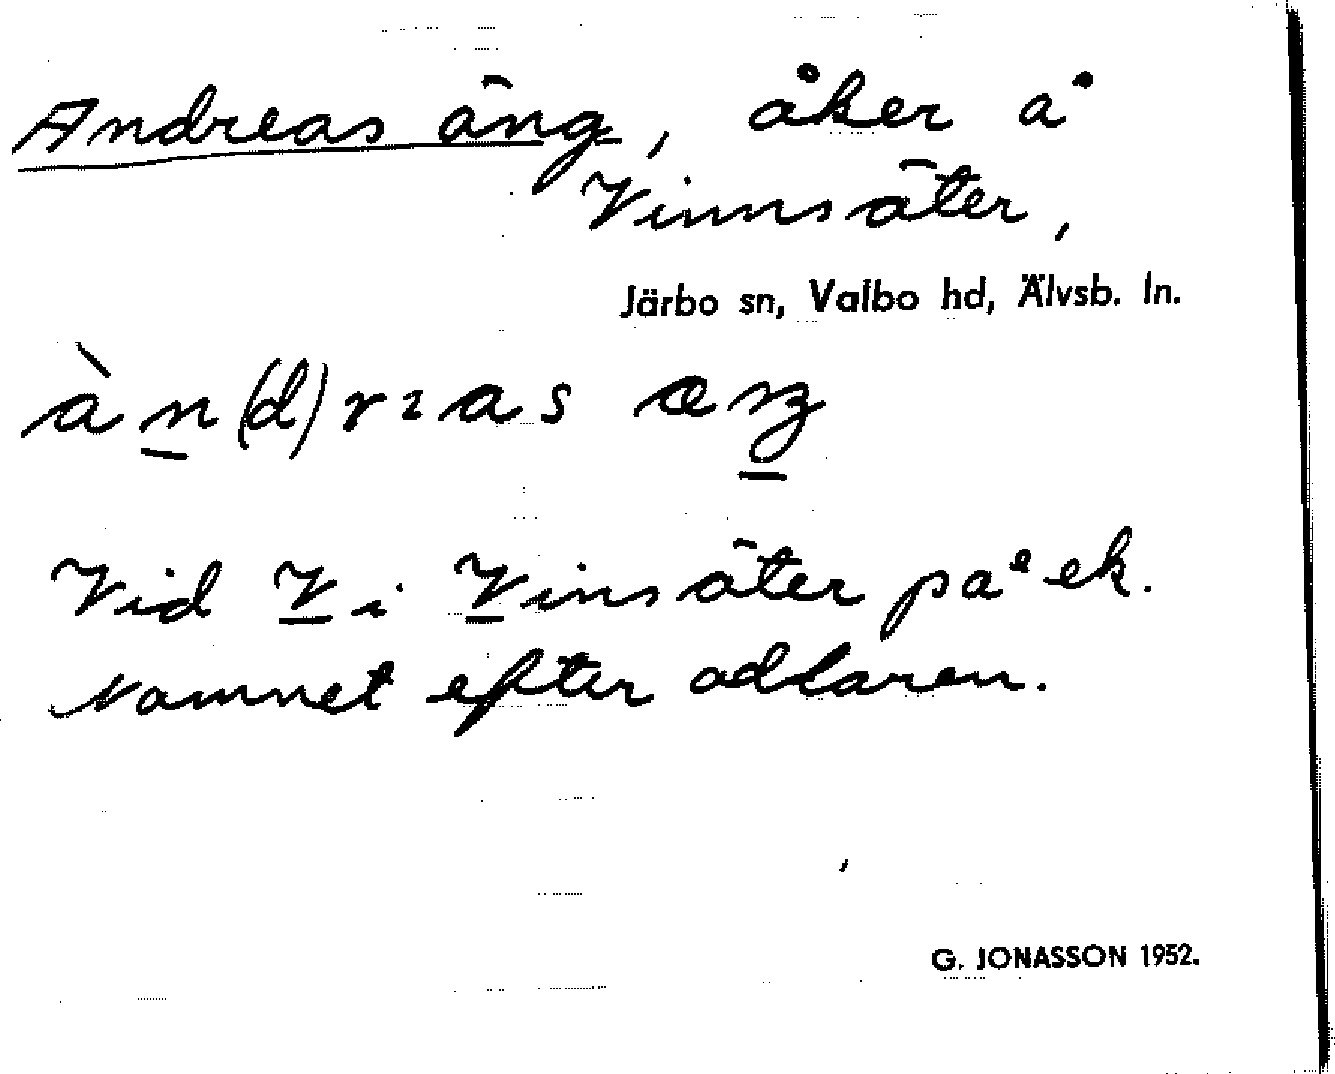 Andreas äng, åker å
Vinnsäter,
Järbo sn, Valbo hd, Älvsb. ln.
àn(d)rɿas æŋ
Vid V i Vinsäter på ek.
Namnet efter odlaren.
G. JONASSON 1952.